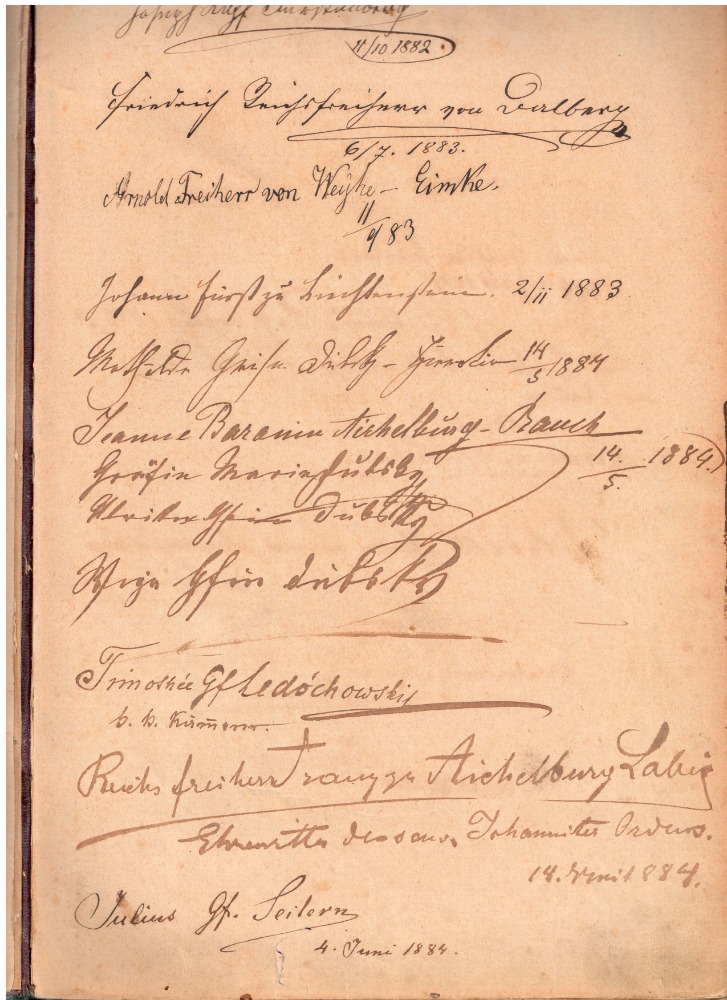 Joseph
11/10 1882
Friedrich Reichsfreiherr von Dalberg
6/7. 1883.
Arnold Freiherr von Weyhe-Eimke.
11/9 83
Johann Fürst zu Liechtenstein. 2/11 1883
Mathilde Gräfin Dubsky - 14/5 1884
Jeanne Baronin Aichelburg-Rauch
Gräfin Marie Dubsky 14./5. 1884.
Gfin Dubsky
Gfin Dubsky
Timothée Gf Ledóchowski
k. k. Kämmerer.
Reichsfreiherr Franz zu Aichelburg Labia
Ehrenritter des souv. Johanniter Ordens.
14. 884.
Julius Gf. Seilern
4. Juni 1884.